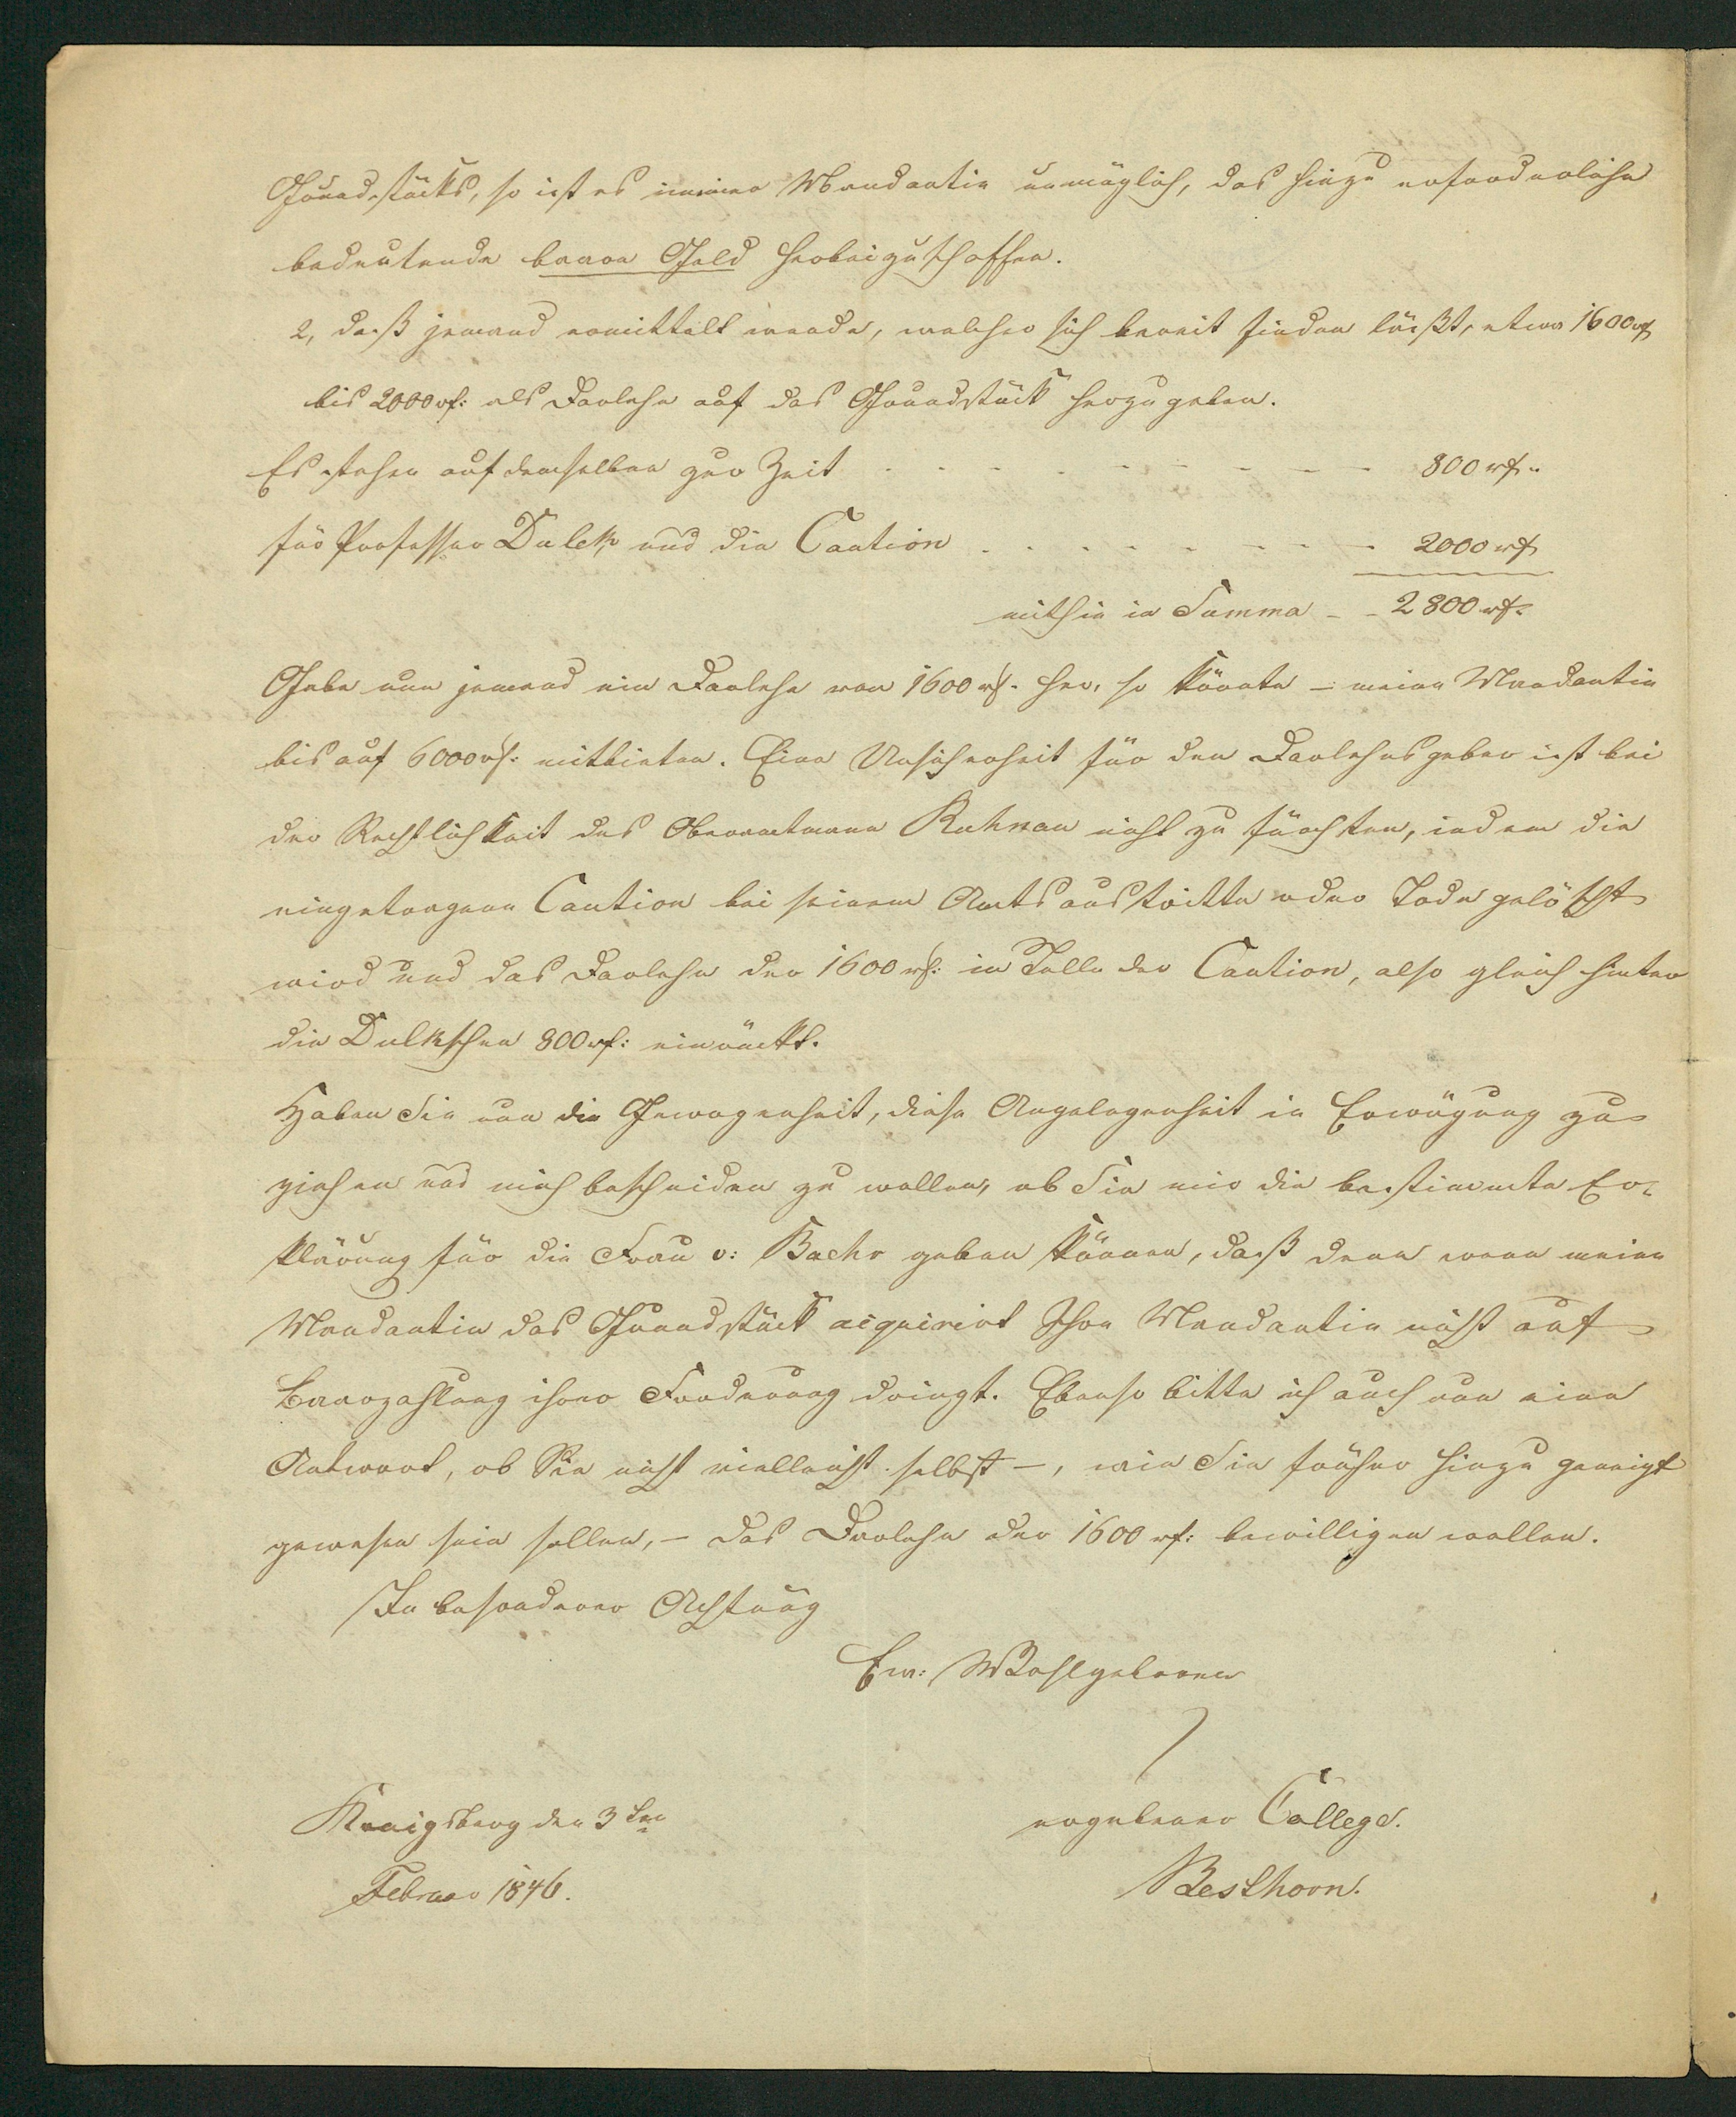 Grundstücks, so ist es meiner Mandantin unmöglich, das hiezu erforderliche
bedeutende baare Geld herbeizuschaffen.
2, daß jemand ermittelt werde, welcher sich bereit finden läßt, etwa 1600 rf
bis 2000 rf: als Darlehn auf das Grundstück herzugeben.
Es stehen auf demselben zur Zeit - - - - - - - - 800 rf.
für Professor Dulck und die Caution - - - - - - - - 2000 rf
mithin in Summa - - 2800 rf.
Gebe nun jemand ein Darlehn von 1600 rf. her, so könnte - meine Mandantin
bis auf 6000 rf: mitbieten. Eine Unsicherheit für den Darlehnsgeber ist bei
der Rechtlichkeit des Oberamtmann Kuhnau nicht zu fürchten, indem die
eingetragene Caution bei seinem Amtsaustritte oder Tode gelöscht
wird und das Darlehn der 1600 rf: in Stelle der Caution, also gleich hinter
die Dulkschen 800 rf: einrückt.
Haben Sie nun die Gewogenheit, diese Angelegenheit in Erwägung zu
ziehen und mich bescheiden zu wollen, ob Sie mir die bestimmte Er-
klärung für die Frau v: Bachr geben können, daß denn wenn meine
Mandantin das Grundstück acquirirt Ihre Mandantin nicht auf
Baarzahlung ihrer Forderung dringt. Ebenso bitte ich auch um eine
Antwort, ob Sie nicht vielleicht selbst -, wie Sie früher hiezu geneigt
gewesen sein sollen, - das Darlehn der 1600 rf: bewilligen wollen.
In besonderer Achtung
Ew: Wohlgeboren
Königsberg den 3ten
ergebener College.
Februar 1846.
Besthorn.